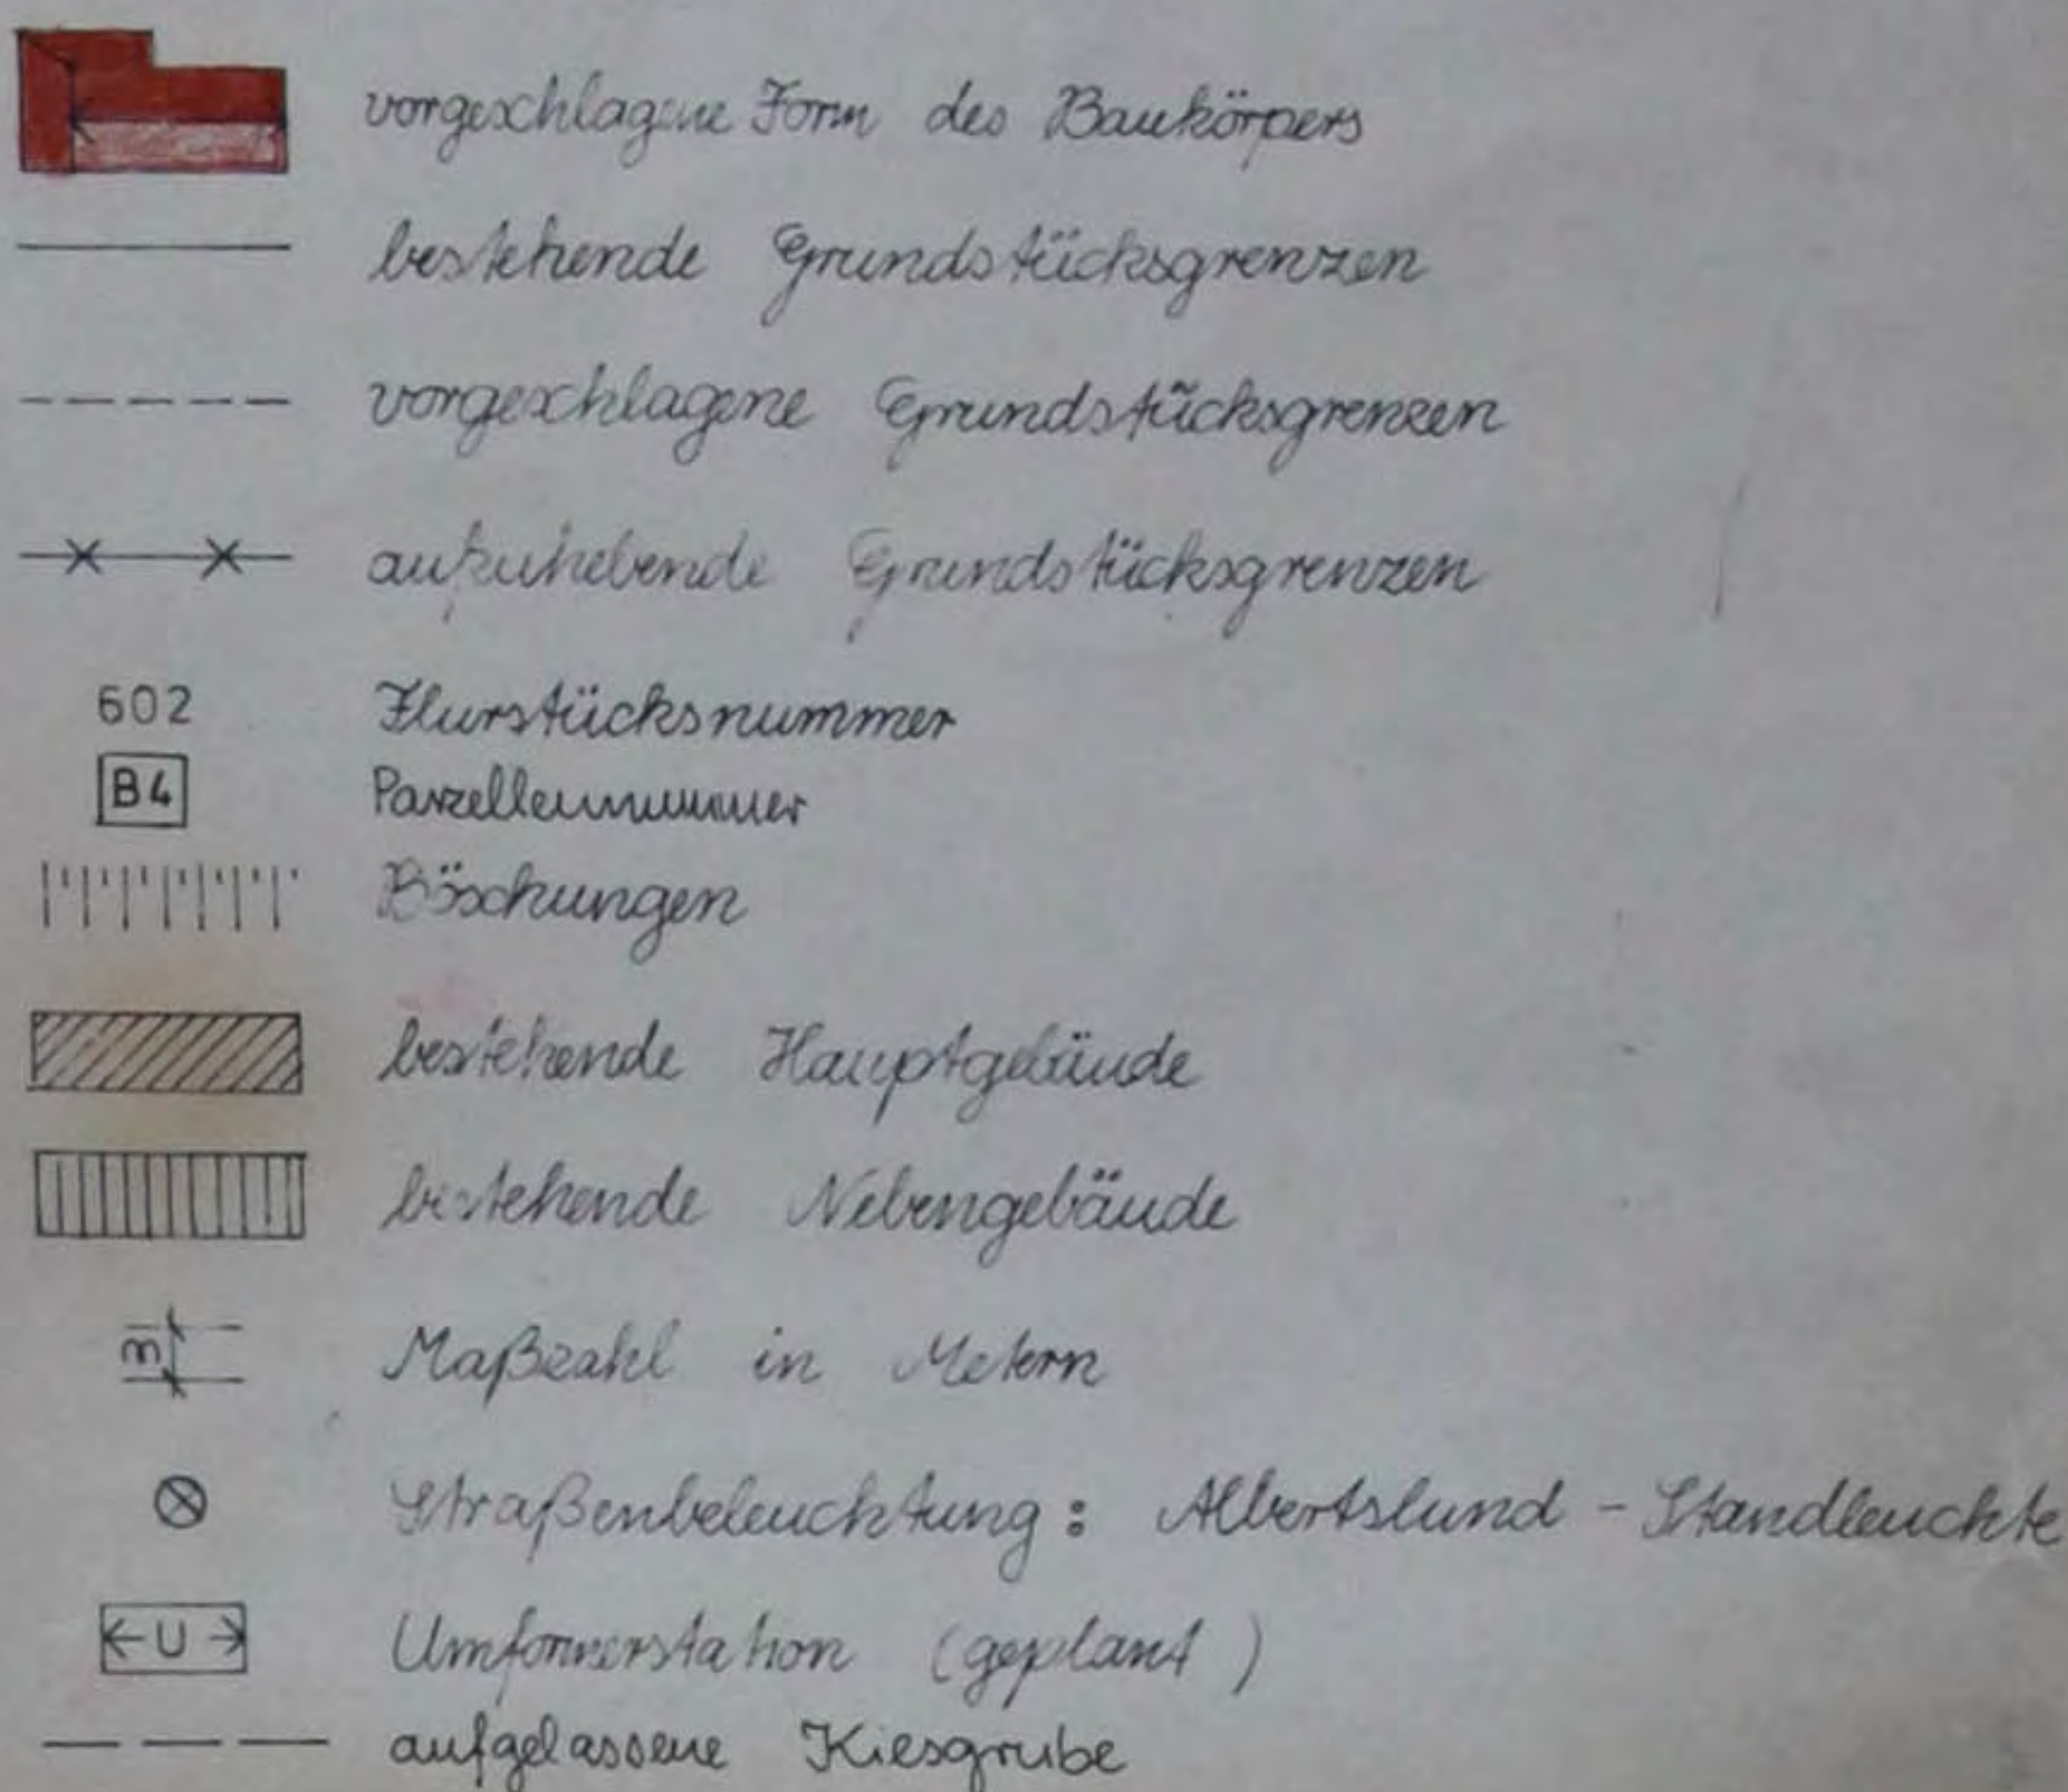 vorgeschlagene Form des Baukörpers
bestehende Grundstücksgrenzen
vorgeschlagene Grundstücksgrenzen
aufzuhebende Grundstücksgrenzen
602 Flurstücksnummer
B4 Parzellennummer
Böschungen
bestehende Hauptgebäude
bestehende Nebengebäude
3 Maßzahl in Metern
Straßenbeleuchtung: Albertslund - Standleuchte
←U→ Umformerstation (geplant)
aufgelassene Kiesgrube